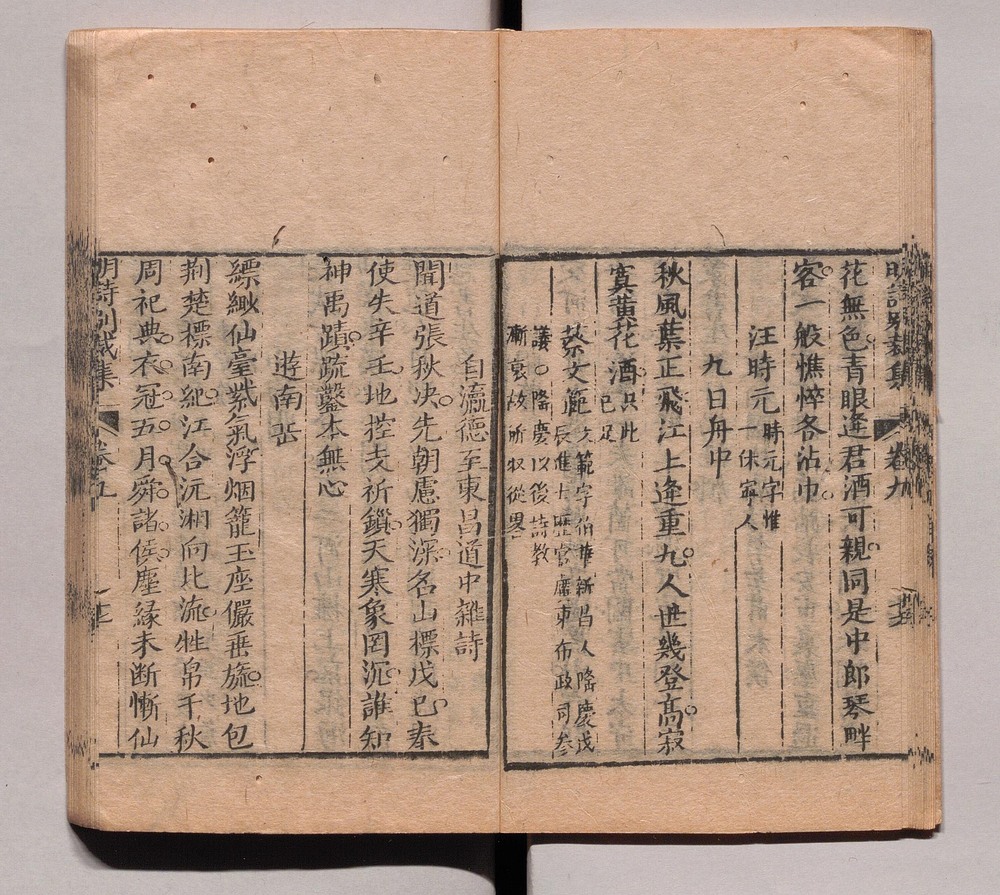 明詩別裁集 卷九
花無色青眼逢君酒可親同是中郎琴畔
客一般憔悴各沾巾
汪時元 時元字惟一休寧人
九日舟中
秋風葉正飛江上逢重九人世幾登高寂
寞黃花酒 只此已足
蔡文範 文範字伯華新昌人隆慶戊辰進士歴官廣東布政司參
議○隆慶以後詩教漸衰故所収從畧
自瀛德至東昌道中雜詩
聞道張秋决先朝慮獨深名山標戊巳春
使失辛壬地控支祈鎖天寒象罔沉誰知
神禹蹟疏鑿本無心
遊南岳
縹緲仙臺紫氣浮烟籠玉座儼垂旒地包
荆楚標南紀江合沅湘向北流牲帛千秋
周祀典衣冠五月舜諸侯塵緣未断慚仙
明詩別裁集 卷九